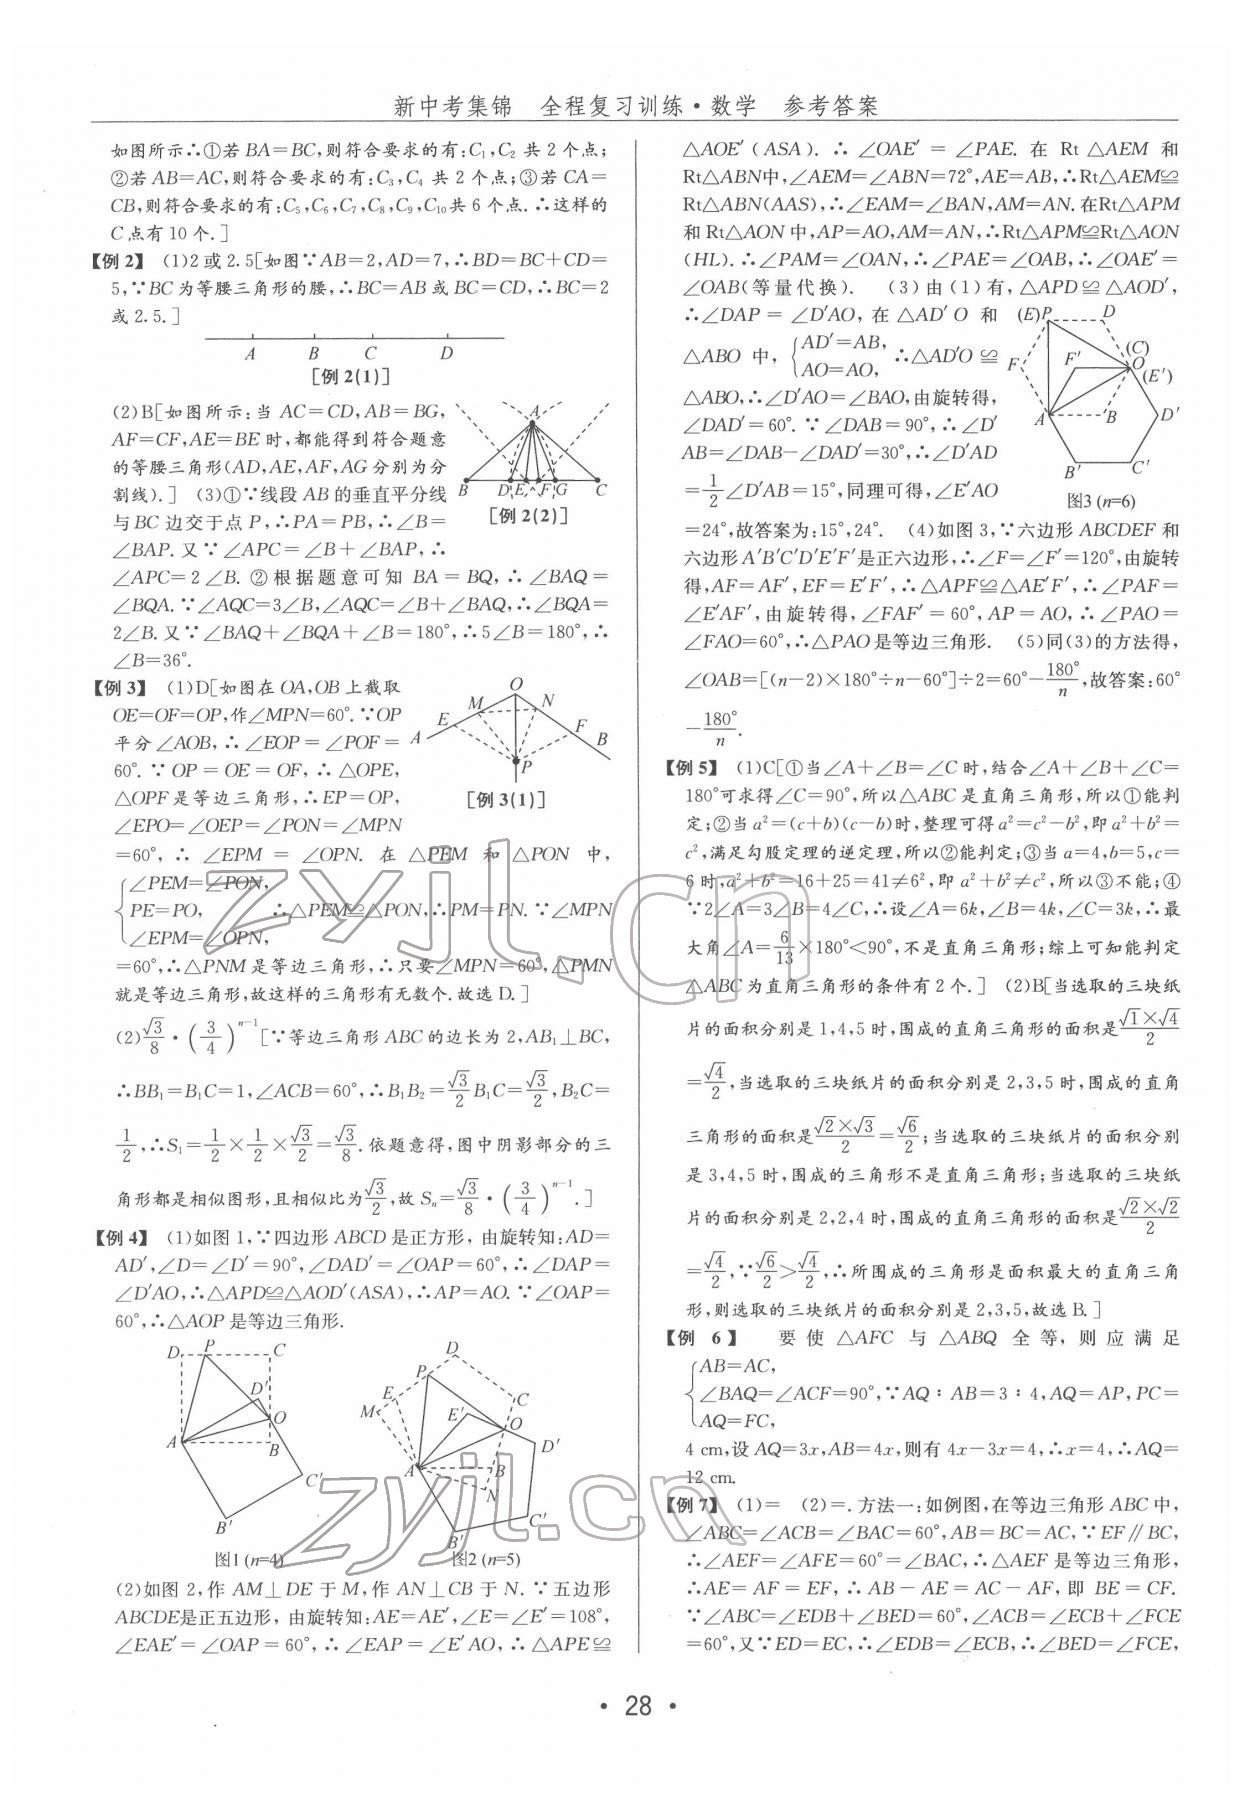 新中考集锦 全程复习训练·数学 参考答案
如图所示∴①若BA=BC,则符合要求的有:C₁,C₂ 共 2 个点;
②若 AB=AC,则符合要求的有:C₃,C₄ 共 2 个点;③若 CA=
CB,则符合要求的有:C₅,C₆,C₇,C₈,C₉,C₁₀共 6 个点.∴这样的
C 点有 10 个.]
【例 2】 (1)2 或 2.5[如图∵AB=2,AD=7,∴BD=BC+CD=
5,∵BC 为等腰三角形的腰,∴BC=AB 或 BC=CD,∴BC=2
或 2.5.]
A B C D
[例 2(1)]
(2)B[如图所示:当 AC=CD,AB=BG,
AF=CF,AE=BE 时,都能得到符合题意
的等腰三角形(AD,AE,AF,AG 分别为分
割线).] (3)①∵线段 AB 的垂直平分线
与 BC 边交于点 P,∴PA=PB,∴∠B=
∠BAP. 又∵∠APC=∠B+∠BAP,∴
A
B D E F G C
[例 2(2)]
∠APC=2∠B. ②根据题意可知 BA=BQ,∴∠BAQ=
∠BQA.∵∠AQC=3∠B,∠AQC=∠B+∠BAQ,∴∠BQA=
2∠B. 又∵∠BAQ+∠BQA+∠B=180°,∴5∠B=180°,∴
∠B=36°.
【例 3】 (1)D[如图在 OA,OB 上截取
OE=OF=OP,作∠MPN=60°.∵OP
平分∠AOB,∴∠EOP=∠POF=
60°.∵OP=OE=OF,∴△OPE,
△OPF 是等边三角形,∴EP=OP,
∠EPO=∠OEP=∠PON=∠MPN
O
M N
E F
A B
P
[例 3(1)]
=60°,∴ ∠EPM = ∠OPN. 在 △PEM 和 △PON 中,
{∠PEM=∠PON,
PE=PO, ∴△PEM≌△PON,∴PM=PN.∵∠MPN
∠EPM=∠OPN,
=60°,∴△PNM 是等边三角形,∴只要∠MPN=60°,△PMN
就是等边三角形,故这样的三角形有无数个.故选 D.]
(2)√3/8·(3/4)^(n−1)[∵等边三角形 ABC 的边长为 2,AB₁⊥BC,
∴BB₁=B₁C=1,∠ACB=60°,∴B₁B₂=√3/2B₁C=√3/2,B₂C=
1/2,∴S₁=1/2×1/2×√3/2=√3/8.依题意得,图中阴影部分的三
角形都是相似图形,且相似比为√3/2,故 Sₙ=√3/8·(3/4)^(n−1).]
【例 4】 (1)如图 1,∵四边形 ABCD 是正方形,由旋转知:AD=
AD′,∠D=∠D′=90°,∠DAD′=∠OAP=60°,∴∠DAP=
∠D′AO,∴△APD≌△AOD′(ASA),∴AP=AO.∵∠OAP=
60°,∴△AOP 是等边三角形.
D P C
D′
O
A B
C′
B′
图1 (n=4)
D
P
E C
M E′ O
D′
A B
N
C′
B′
图2 (n=5)
(2)如图 2,作 AM⊥DE 于 M,作 AN⊥CB 于 N.∵五边形
ABCDE是正五边形,由旋转知:AE=AE′,∠E=∠E′=108°,
∠EAE′=∠OAP=60°,∴∠EAP=∠E′AO,∴△APE≌
△AOE′(ASA).∴∠OAE′=∠PAE. 在 Rt△AEM 和
Rt△ABN中,∠AEM=∠ABN=72°,AE=AB,∴Rt△AEM≌
Rt△ABN(AAS),∴∠EAM=∠BAN,AM=AN.在Rt△APM
和 Rt△AON 中,AP=AO,AM=AN,∴Rt△APM≌Rt△AON
(HL).∴∠PAM=∠OAN,∴∠PAE=∠OAB,∴∠OAE′=
∠OAB(等量代换). (3)由(1)有,△APD≌△AOD′,
∴∠DAP=∠D′AO,在△AD′O 和
△ABO 中,{AD′=AB, AO=AO, ∴△AD′O≌
△ABO,∴∠D′AO=∠BAO,由旋转得,
∠DAD′=60°.∵∠DAB=90°,∴∠D′
AB=∠DAB−∠DAD′=30°,∴∠D′AD
=1/2∠D′AB=15°,同理可得,∠E′AO
(E)P D
(C)
F′ O
F (E′)
A B D′
B′ C′
图3 (n=6)
=24°,故答案为:15°,24°. (4)如图 3,∵六边形 ABCDEF 和
六边形A′B′C′D′E′F′是正六边形,∴∠F=∠F′=120°,由旋转
得,AF=AF′,EF=E′F′,∴△APF≌△AE′F′,∴∠PAF=
∠E′AF′,由旋转得,∠FAF′=60°,AP=AO,∴∠PAO=
∠FAO=60°,∴△PAO 是等边三角形. (5)同(3)的方法得,
∠OAB=[(n−2)×180°÷n−60°]÷2=60°−180°/n,故答案:60°
−180°/n.
【例 5】 (1)C[①当∠A+∠B=∠C 时,结合∠A+∠B+∠C=
180°可求得∠C=90°,所以△ABC 是直角三角形,所以①能判
定;②当 a²=(c+b)(c−b)时,整理可得 a²=c²−b²,即 a²+b²=
c²,满足勾股定理的逆定理,所以②能判定;③当 a=4,b=5,c=
6 时,a²+b²=16+25=41≠6²,即 a²+b²≠c²,所以③不能;④
∵2∠A=3∠B=4∠C,∴设∠A=6k,∠B=4k,∠C=3k,∴最
大角∠A=6/13×180°<90°,不是直角三角形;综上可知能判定
△ABC 为直角三角形的条件有 2 个.] (2)B[当选取的三块纸
片的面积分别是 1,4,5 时,围成的直角三角形的面积是√1×√4/2
=√4/2,当选取的三块纸片的面积分别是 2,3,5 时,围成的直角
三角形的面积是√2×√3/2=√6/2;当选取的三块纸片的面积分别
是 3,4,5 时,围成的三角形不是直角三角形;当选取的三块纸
片的面积分别是 2,2,4 时,围成的直角三角形的面积是√2×√2/2
=√4/2,∵√6/2>√4/2,∴所围成的三角形是面积最大的直角三角
形,则选取的三块纸片的面积分别是 2,3,5,故选 B.]
【例 6】 要使 △AFC 与 △ABQ 全等,则应满足
{AB=AC,
∠BAQ=∠ACF=90°,∵AQ∶AB=3∶4,AQ=AP,PC=
AQ=FC,
4 cm,设 AQ=3x,AB=4x,则有 4x−3x=4,∴x=4,∴AQ=
12 cm.
【例 7】 (1)= (2)=.方法一:如例图,在等边三角形 ABC 中,
∠ABC=∠ACB=∠BAC=60°,AB=BC=AC,∵EF∥BC,
∴∠AEF=∠AFE=60°=∠BAC,∴△AEF 是等边三角形,
∴AE=AF=EF,∴AB−AE=AC−AF,即 BE=CF.
∵∠ABC=∠EDB+∠BED=60°,∠ACB=∠ECB+∠FCE
=60°,又∵ED=EC,∴∠EDB=∠ECB,∴∠BED=∠FCE,
· 28 ·
zyjl.cn
zyjl.cn